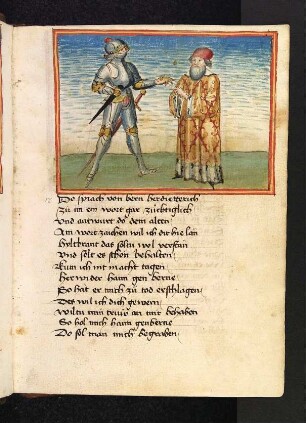 Do sprach von bern her dietterich
Zü im ein wort gar zuchtiglich
Vnd antwurt do dem alten
Ain wortzaichen wil ich dir hie lan
Hyltbrant das soltu wol verstan
Vnd solt es schon behalten
Kum ich nit in acht tagen
Her wider haim gen berne
So hat er mich zü tod erschlagen
Des wil ich dich gewern
Wiltu min trüw an mir behaben
So hol mich haim gen berne
Do sol man mich begraben